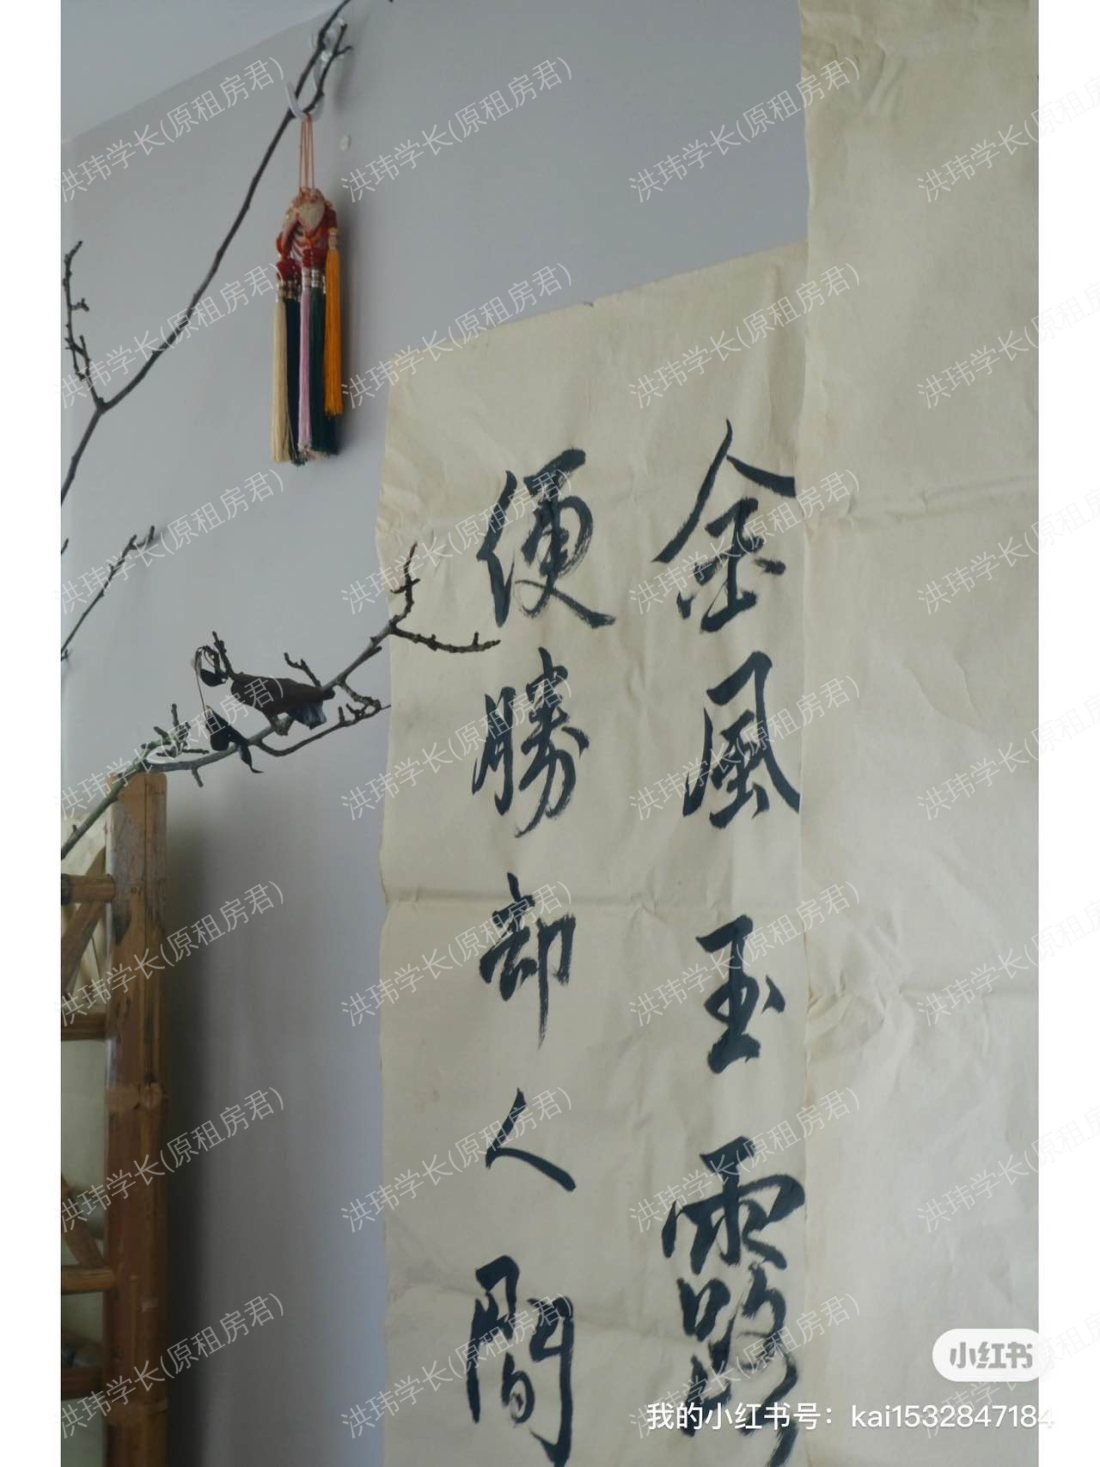 金風玉露
便勝却人間
小红书
我的小红书号：kai1532847184
洪玮学长(原租房君)